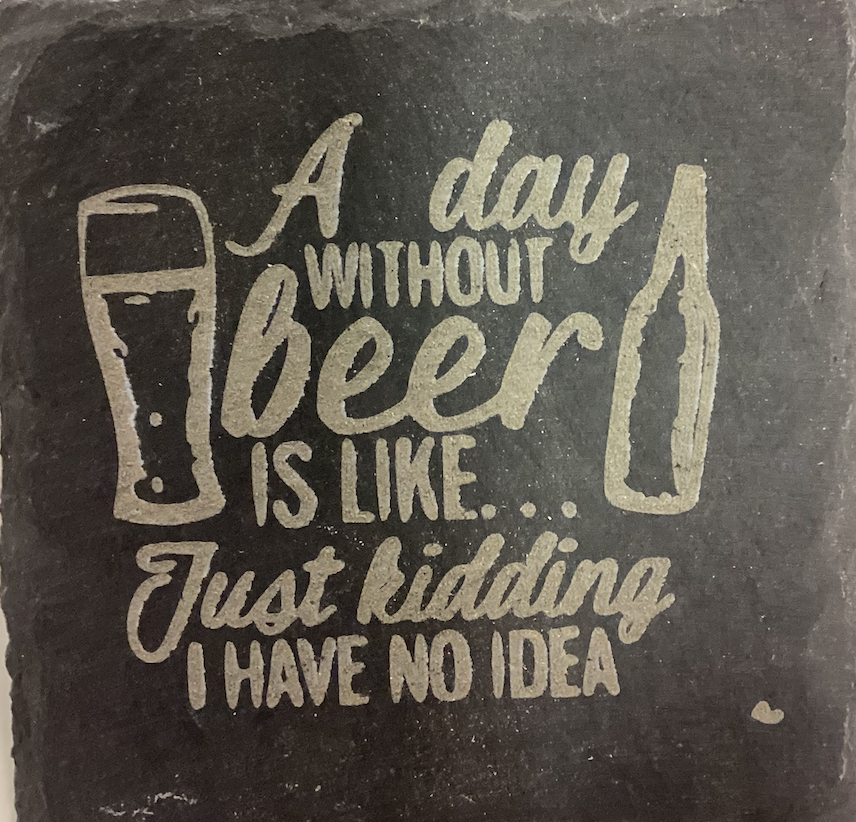 A day
WITHOUT
beer
IS LIKE...
Just kidding
I HAVE NO IDEA